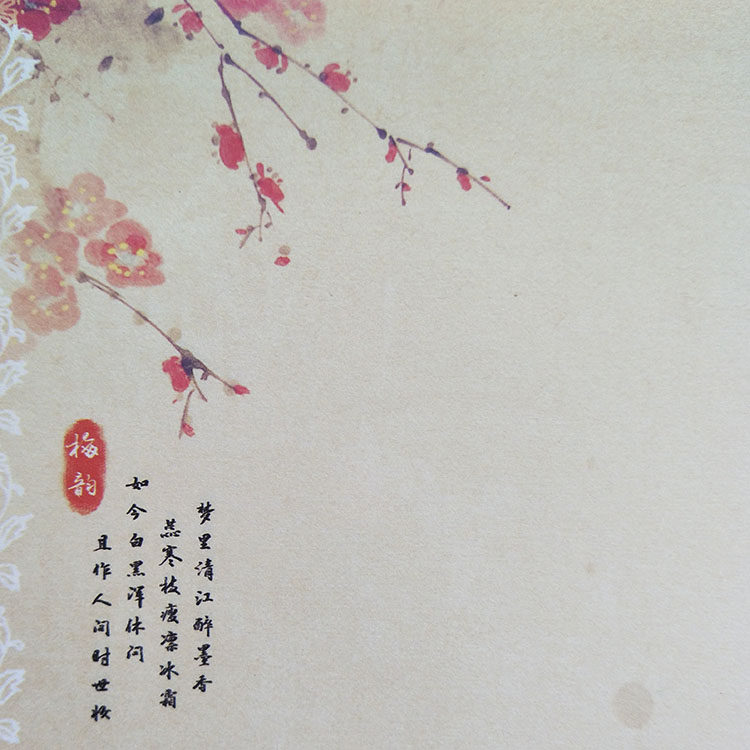 梦里清江醉墨香
蕊寒枝瘦凛冰霜
如今白黑浑休问
且作人间时世妆
梅韵